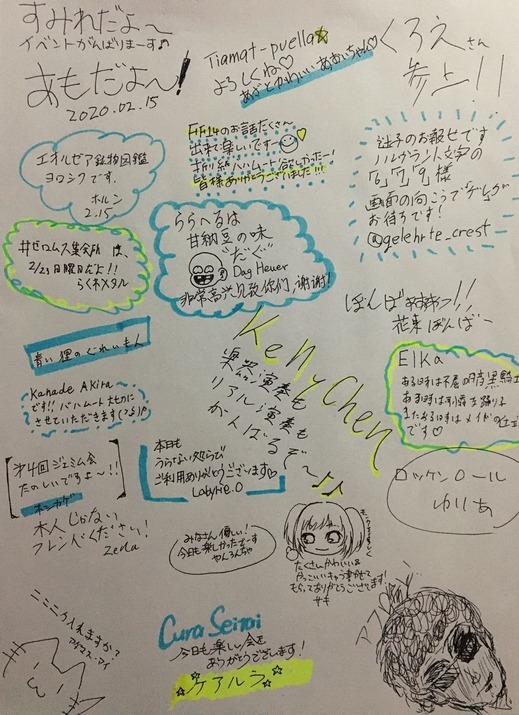 すみれだよ〜
イベントがんばりまーす♪
あもだよ〜!
2020.02.15
Tiamat-puella☆
よろしくね♡
あざとかわいいあおいちゃん♡
くろえさん
参上!!
FF14のお話たくさん
出来て楽しいですー
折り紙バハムート欲しかったー!
皆様ありがとうございました!!!
エオルゼア鉱物図鑑
ヨロシクです.
ホルン
2.15
迷子のお報せです
ハルヴァント文字の
「6」「7」「9」様
画面の向こうで
お待ちです!
@gelehrte_crest
#ゼロムス集会所 は、
2/23日曜日だよ!!
らくネメタル
ららへるは
甘納豆の味
"だぐ"
Dag Heuer
非常高兴见到你们,谢谢!
ぽんぽ
花束ぽんぱー
青い狸のぐれいもん
Kelly Chen
楽器演奏も
リアル演奏も
がんばるぞ〜♪♪
Elka
ある時は不屈の暗黒騎士
ある時は
またある時はメイドの
です♡
Kanade Akira
です!! バハムート大切に
させていただきます
第4回ジェミム会
たのしいですよ〜!!
ホンカゲ
本日も
うらない処らびで
ご利用ありがとうございます♡
Labyrie.O
ロッケンロール
ゆりあ
木人じゃない
フレンドください!
Zella
みなさん優しい!
今日も楽しかったでーす
やんろんちゃ
たくさんかわいい&
かっこいいキャラ事かせて
もらってありがとうございます!
サキ
ニャニャ入れますか?
アイリス・アイ
Cura Seinai
今日も楽しい会を
ありがとうございます!
☆ケアルラ☆
アフロ